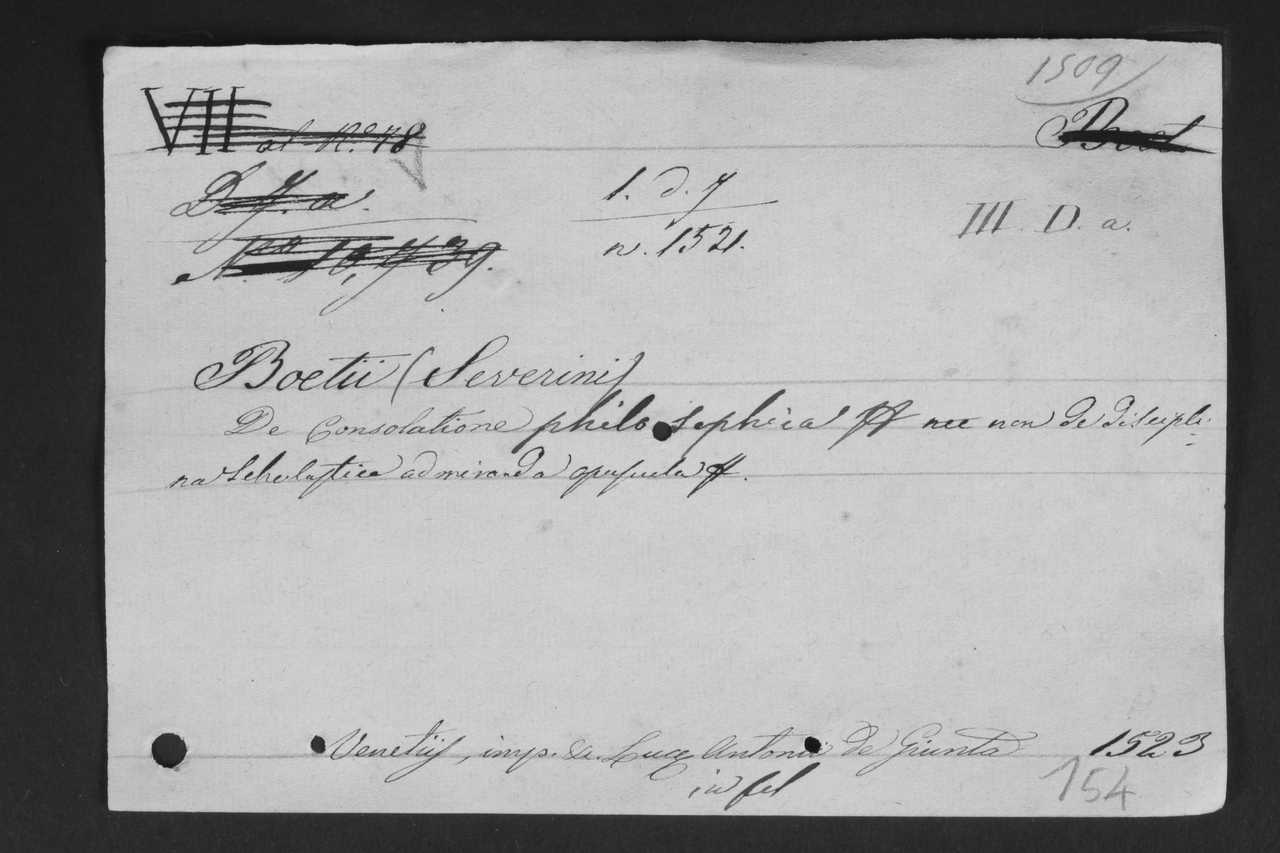 1509
VII al No. 78
Boet
D. 7. a.
1. d. 7
III. D. a.
No. 10,739.
n. 1521.
Boetii (Severini)
De Consolatione philosophica ff nec non de discipli=
na Scholastica admiranda opuscula ff.
Venetiis, imp. Luce Antonii de Giunta 1523
in fol
154